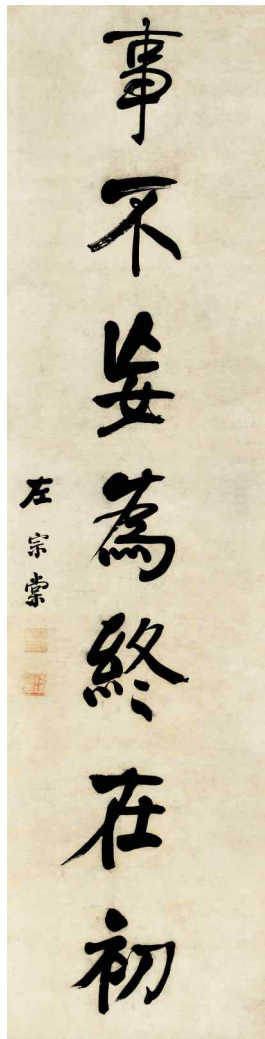 事不妄為終在初
左宗棠